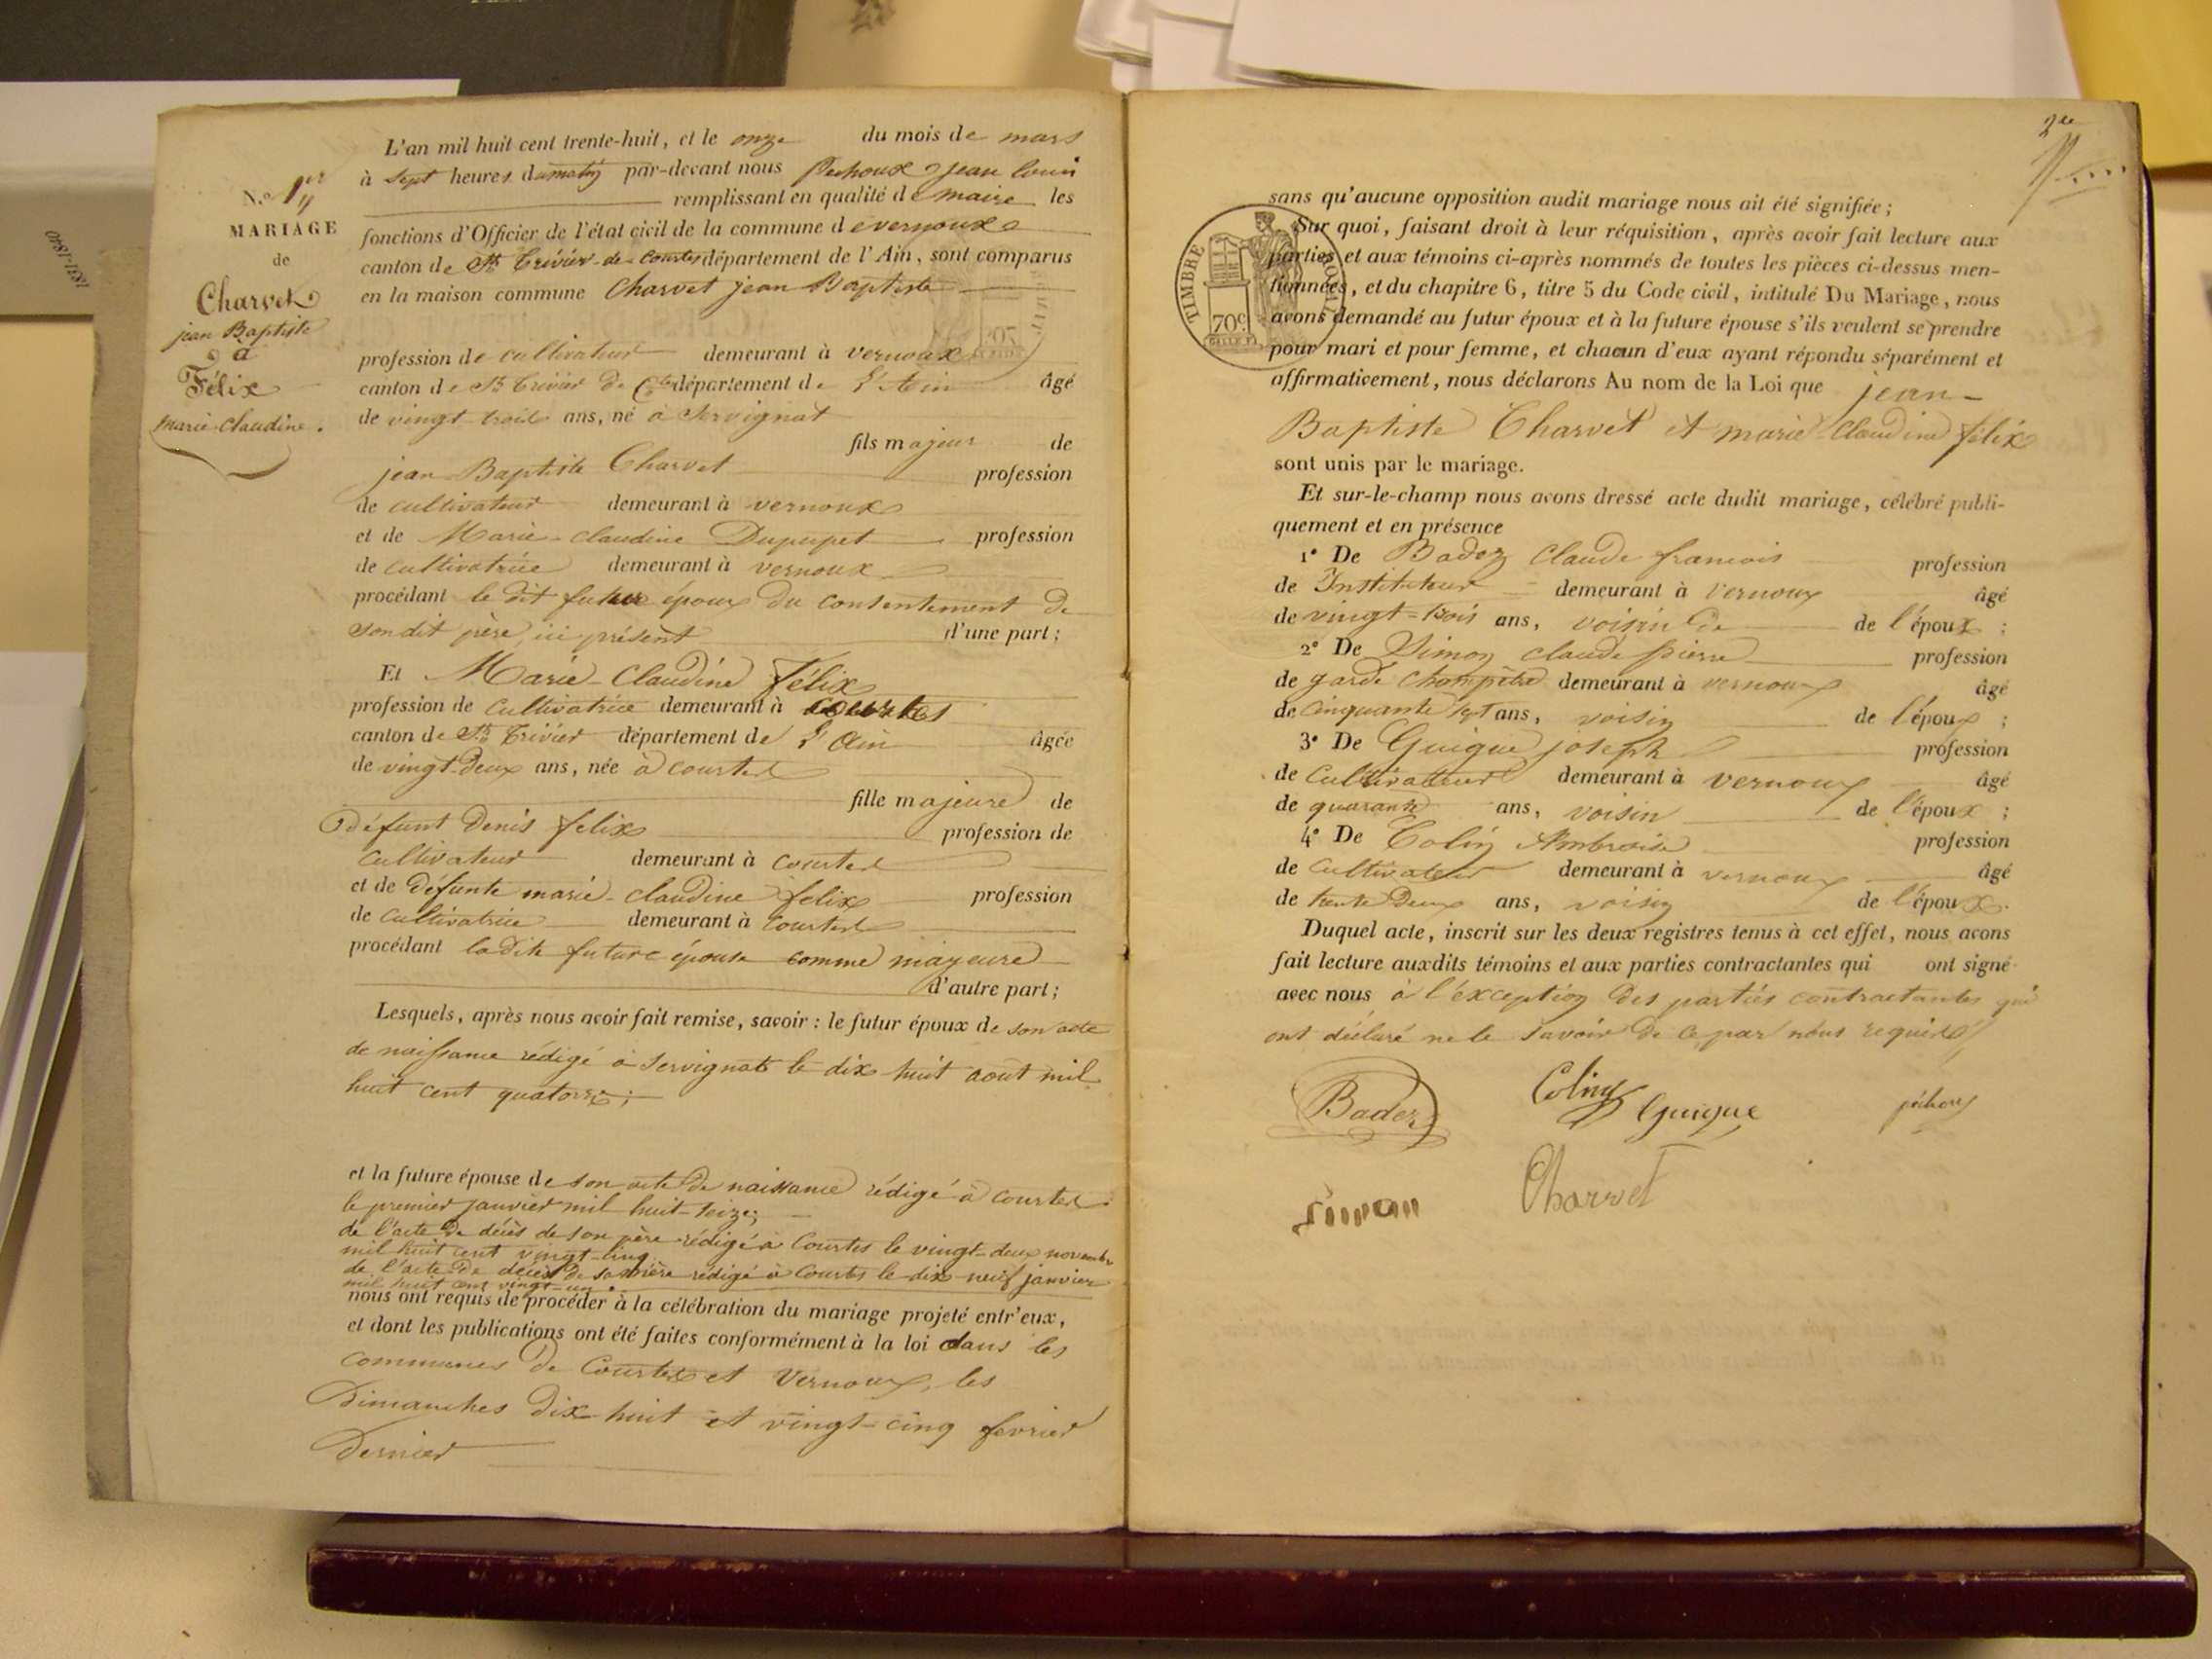 1831-1840
N.o 1er
MARIAGE
de
Charvet
jean Baptiste
à
Félix
marie-claudine.
L'an mil huit cent trente-huit, et le onze du mois de mars
à sept heures du matin par-devant nous Pechoux jean louis
remplissant en qualité de maire les
fonctions d'Officier de l'état civil de la commune de vernoux
canton de St. Trivier-de-Courtes département de l'Ain, sont comparus
en la maison commune Charvet jean Baptiste
profession de cultivateur demeurant à vernoux
canton de St. Trivier de Ctes département de l'Ain âgé
de vingt trois ans, né à Servignat
fils majeur de
jean Baptiste Charvet profession
de cultivateur demeurant à vernoux
et de Marie-claudine Dupupet profession
de cultivatrice demeurant à vernoux
procédant le dit futur époux du consentement de
son dit père, ici présent d'une part ;
Et Marie-Claudine Félix
profession de cultivatrice demeurant à courtes
canton de St. Trivier département de l'Ain âgée
de vingt-deux ans, née à courtes
fille majeure de
Défunt Denis félix profession de
cultivateur demeurant à courtes
et de défunte marie-claudine félix profession
de cultivatrice demeurant à courtes
procédant ladite future épouse comme majeure
d'autre part ;
Lesquels, après nous avoir fait remise, savoir : le futur époux de son acte
de naissance rédigé à Servignat le dix-huit aout mil
huit cent quatorze ;
et la future épouse de son acte de naissance rédigé à courtes
le premier janvier mil huit-seize ;
de l'acte de décès de son père rédigé à Courtes le vingt-deux novembre
mil huit cent vingt-cinq.
de l'acte de décès de sa mère rédigé à Courtes le dix neuf janvier
mil huit cent vingt-un.
nous ont requis de procéder à la célébration du mariage projeté entr'eux,
et dont les publications ont été faites conformément à la loi dans les
communes de Courtes et Vernoux, les
Dimanches dix-huit et vingt-cinq fevrier
dernier
2e
sans qu'aucune opposition audit mariage nous ait été signifiée ;
Sur quoi, faisant droit à leur réquisition, après avoir fait lecture aux
parties et aux témoins ci-après nommés de toutes les pièces ci-dessus men-
tionnées, et du chapitre 6, titre 5 du Code civil, intitulé Du Mariage, nous
avons demandé au futur époux et à la future épouse s'ils veulent se prendre
pour mari et pour femme, et chacun d'eux ayant répondu séparément et
affirmativement, nous déclarons Au nom de la Loi que jean-
Baptiste Charvet et marie-Claudine félix
sont unis par le mariage.
Et sur-le-champ nous avons dressé acte dudit mariage, célébré publi-
quement et en présence
1° De Badoz Claude francois profession
de Instituteur demeurant à Vernoux âgé
de vingt-trois ans, voisin de de l'époux ;
2° De Simon claude pierre profession
de garde champêtre demeurant à vernoux âgé
de cinquante sept ans, voisin de l'époux ;
3° De Guigue joseph profession
de Cultivateur demeurant à vernoux âgé
de quarante ans, voisin de l'époux ;
4° De Colin Ambroise profession
de cultivateur demeurant à vernoux âgé
de trente deux ans, voisin de l'époux.
Duquel acte, inscrit sur les deux registres tenus à cet effet, nous avons
fait lecture auxdits témoins et aux parties contractantes qui ont signé
avec nous à l'exception des parties contractantes qui
ont déclaré ne le savoir de ce par nous requis
Badoz
Colin
Guigue
péchoux
simon
Charvet
TIMBRE ROYAL
70c